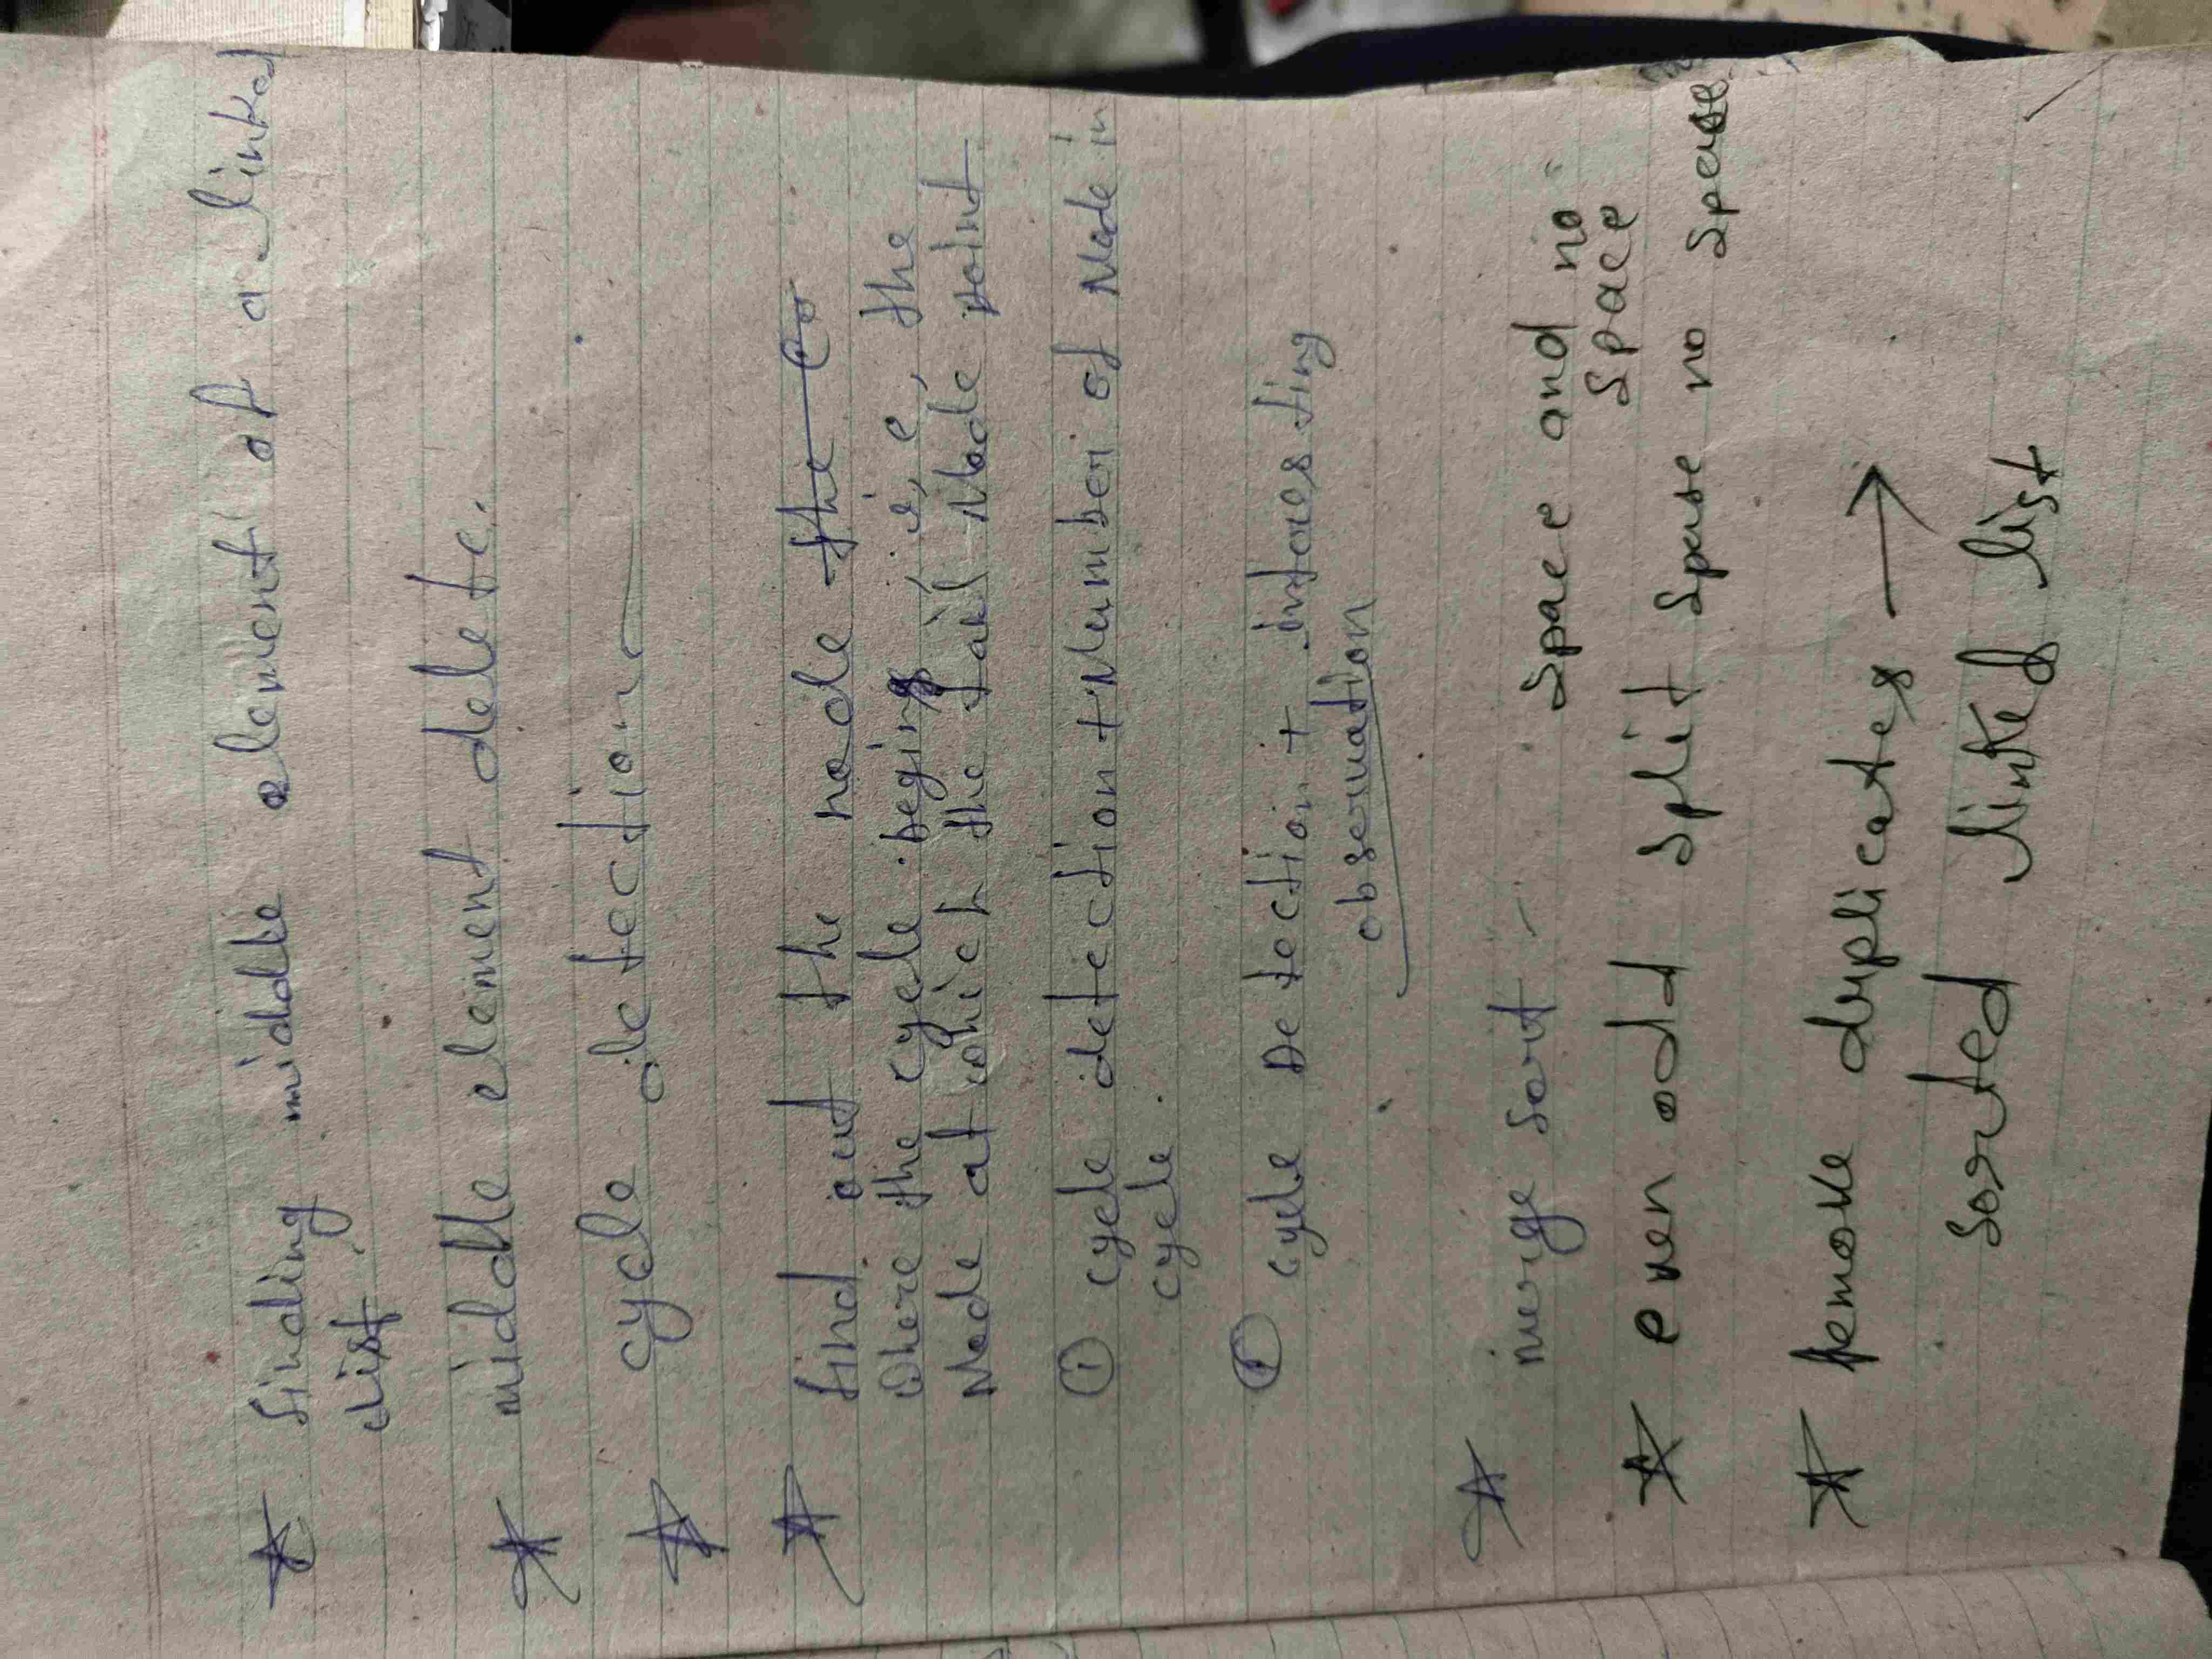 ☆ finding middle element of a linked
list.
☆ middle element delete.
☆ cycle detection
☆ find out the node the Co
Where the cycle begins, i, e, the
Node at which the tail Node point
① cycle detection + Number of Node in
cycle.
cycle Detection + interesting
observation
☆ merge sort - Space and no
Space
☆ even odd split Spase no Space
☆ Remove duplicates →
sorted linked list